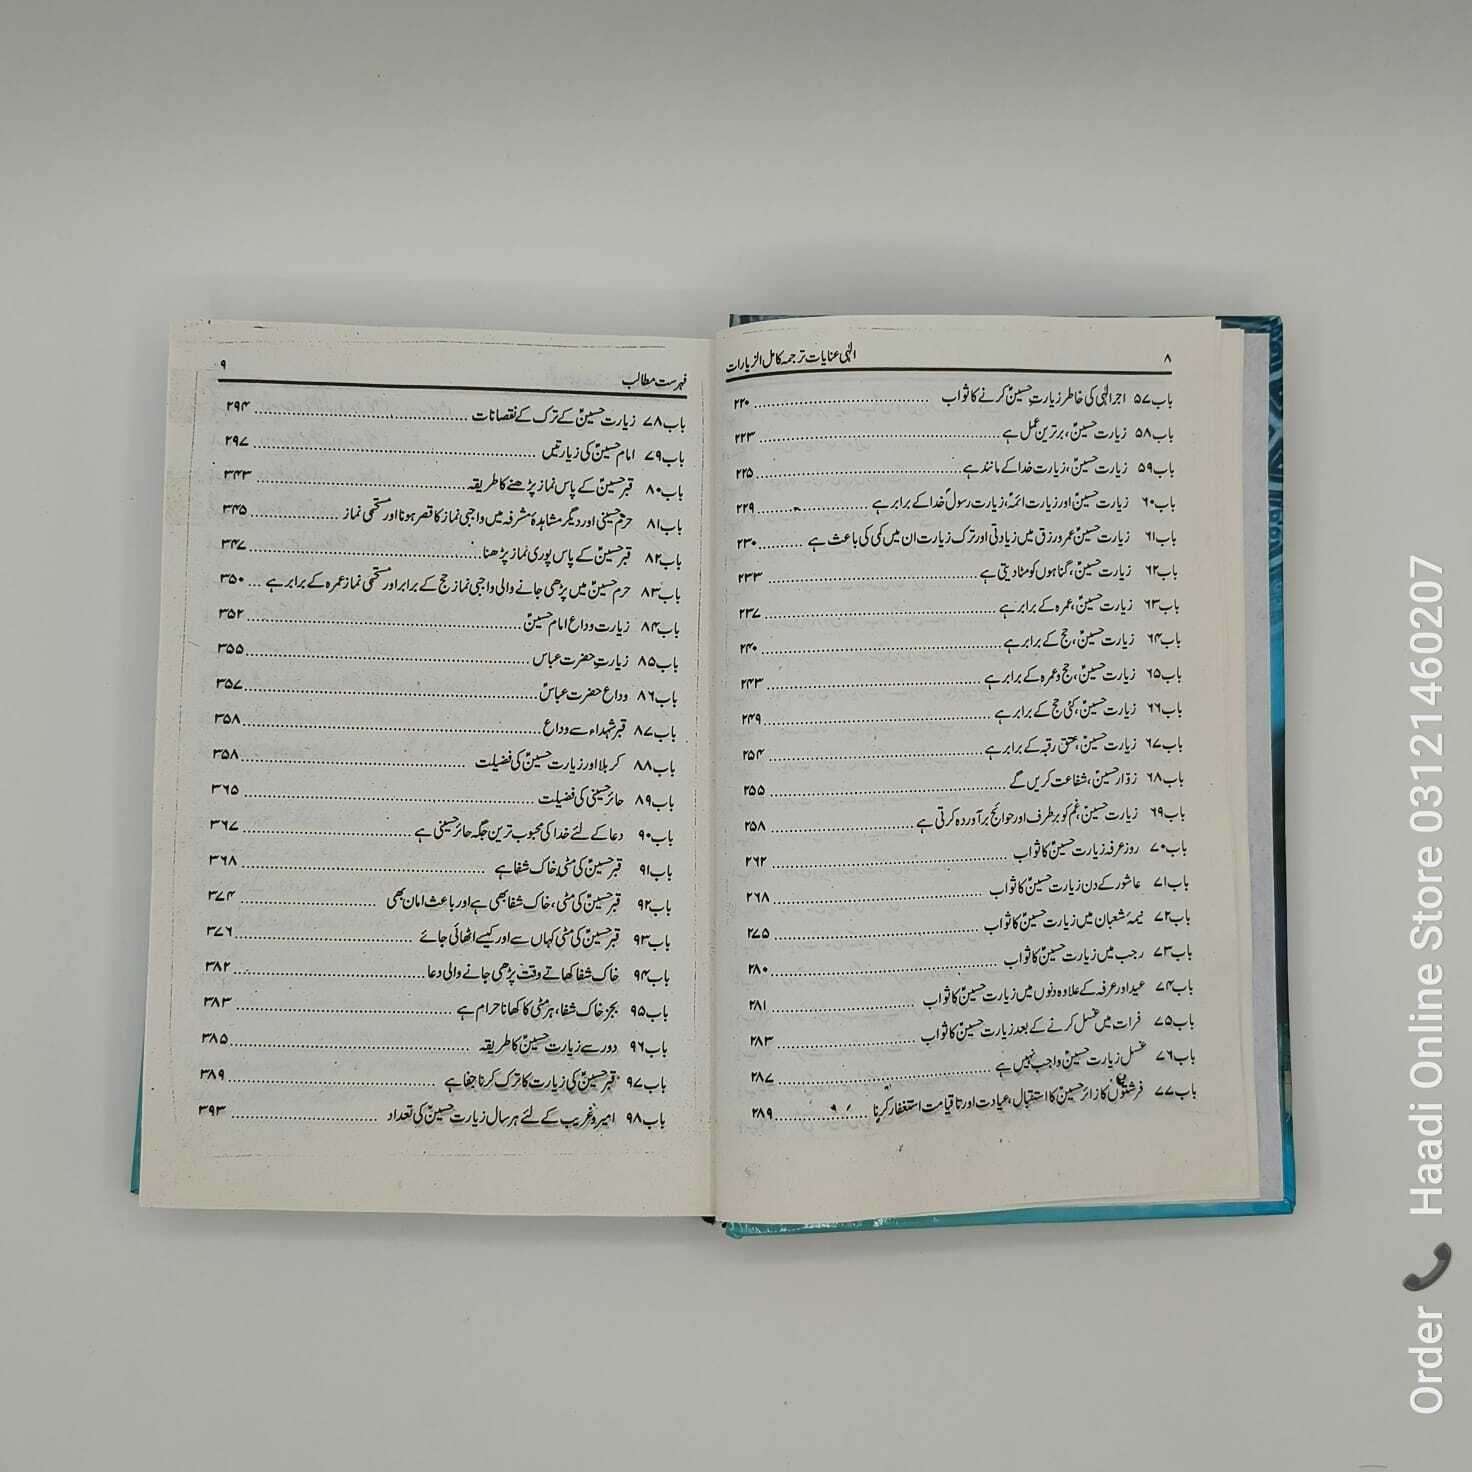 ۸
الٰہی عنایات ترجمہ کامل الزیارات
باب ۵۷ اجر الٰہی کی خاطر زیارتِ حسینؑ کرنے کا ثواب ........ ۲۲۰
باب ۵۸ زیارت حسینؑ، برترین عمل ہے ........ ۲۲۳
باب ۵۹ زیارت حسینؑ، زیارت خدا کے مانند ہے ........ ۲۲۵
باب ۶۰ زیارت حسینؑ اور زیارت ائمہؑ، زیارت رسولؐ خدا کے برابر ہے ........ ۲۲۹
باب ۶۱ زیارت حسینؑ عمر و رزق میں زیادتی اور ترک زیارت ان میں کمی کی باعث ہے ........ ۲۳۰
باب ۶۲ زیارت حسینؑ، گناہوں کو مٹا دیتی ہے ........ ۲۳۳
باب ۶۳ زیارت حسینؑ، عمرہ کے برابر ہے ........ ۲۳۷
باب ۶۴ زیارت حسینؑ، حج کے برابر ہے ........ ۲۴۰
باب ۶۵ زیارت حسینؑ، حج و عمرہ کے برابر ہے ........ ۲۴۳
باب ۶۶ زیارت حسینؑ، کئی حج کے برابر ہے ........ ۲۴۹
باب ۶۷ زیارت حسینؑ، عتق رقبہ کے برابر ہے ........ ۲۵۴
باب ۶۸ زوّار حسینؑ، شفاعت کریں گے ........ ۲۵۵
باب ۶۹ زیارت حسینؑ، غم کو برطرف اور حوائج برآوردہ کرتی ہے ........ ۲۵۸
باب ۷۰ روز عرفہ زیارت حسینؑ کا ثواب ........ ۲۶۲
باب ۷۱ عاشور کے دن زیارت حسینؑ کا ثواب ........ ۲۶۸
باب ۷۲ نیمۂ شعبان میں زیارت حسینؑ کا ثواب ........ ۲۷۵
باب ۷۳ رجب میں زیارت حسینؑ کا ثواب ........ ۲۸۰
باب ۷۴ عید اور عرفہ کے علاوہ دنوں میں زیارت حسینؑ کا ثواب ........ ۲۸۱
باب ۷۵ فرات میں غسل کرنے کے بعد زیارت حسینؑ کا ثواب ........ ۲۸۳
باب ۷۶ غسل زیارت حسینؑ واجب نہیں ہے ........ ۲۸۷
باب ۷۷ فرشتوں کا زائر حسینؑ کا استقبال، عیادت اور تا قیامت استغفار کرنا ........ ۲۸۹
فہرست مطالب
۹
باب ۷۸ زیارت حسینؑ کے ترک کے نقصانات ........ ۲۹۴
باب ۷۹ امام حسینؑ کی زیارتیں ........ ۲۹۷
باب ۸۰ قبر حسینؑ کے پاس نماز پڑھنے کا طریقہ ........ ۳۴۳
باب ۸۱ حرم حسینی اور دیگر مشاہدۂ مشرفہ میں واجبی نماز کا قصر ہونا اور مستحبی نماز ........ ۳۴۵
باب ۸۲ قبر حسینؑ کے پاس پوری نماز پڑھنا ........ ۳۴۷
باب ۸۳ حرم حسینؑ میں پڑھی جانے والی واجبی نماز حج کے برابر اور مستحبی نماز عمرہ کے برابر ہے ... ۳۵۰
باب ۸۴ زیارت وداع امام حسینؑ ........ ۳۵۲
باب ۸۵ زیارتِ حضرت عباس ........ ۳۵۵
باب ۸۶ وداع حضرت عباسؑ ........ ۳۵۷
باب ۸۷ قبر شہداء سے وداع ........ ۳۵۸
باب ۸۸ کربلا اور زیارت حسینؑ کی فضیلت ........ ۳۵۸
باب ۸۹ حائر حسینی کی فضیلت ........ ۳۶۵
باب ۹۰ دعا کے لئے خدا کی محبوب ترین جگہ حائر حسینی ہے ........ ۳۶۷
باب ۹۱ قبر حسینؑ کی مٹی خاک شفا ہے ........ ۳۶۸
باب ۹۲ قبر حسینؑ کی مٹی، خاک شفا بھی ہے اور باعث امان بھی ........ ۳۷۴
باب ۹۳ قبر حسینؑ کی مٹی کہاں سے اور کیسے اٹھائی جائے ........ ۳۷۶
باب ۹۴ خاک شفا کھاتے وقت پڑھی جانے والی دعا ........ ۳۸۲
باب ۹۵ بجز خاک شفا، ہر مٹی کا کھانا حرام ہے ........ ۳۸۳
باب ۹۶ دور سے زیارت حسینؑ کا طریقہ ........ ۳۸۵
باب ۹۷ قبر حسینؑ کی زیارت کا ترک کرنا جفا ہے ........ ۳۸۹
باب ۹۸ امیر و غریب کے لئے ہر سال زیارت حسینؑ کی تعداد ........ ۳۹۳
Order 📞 Haadi Online Store 03121460207